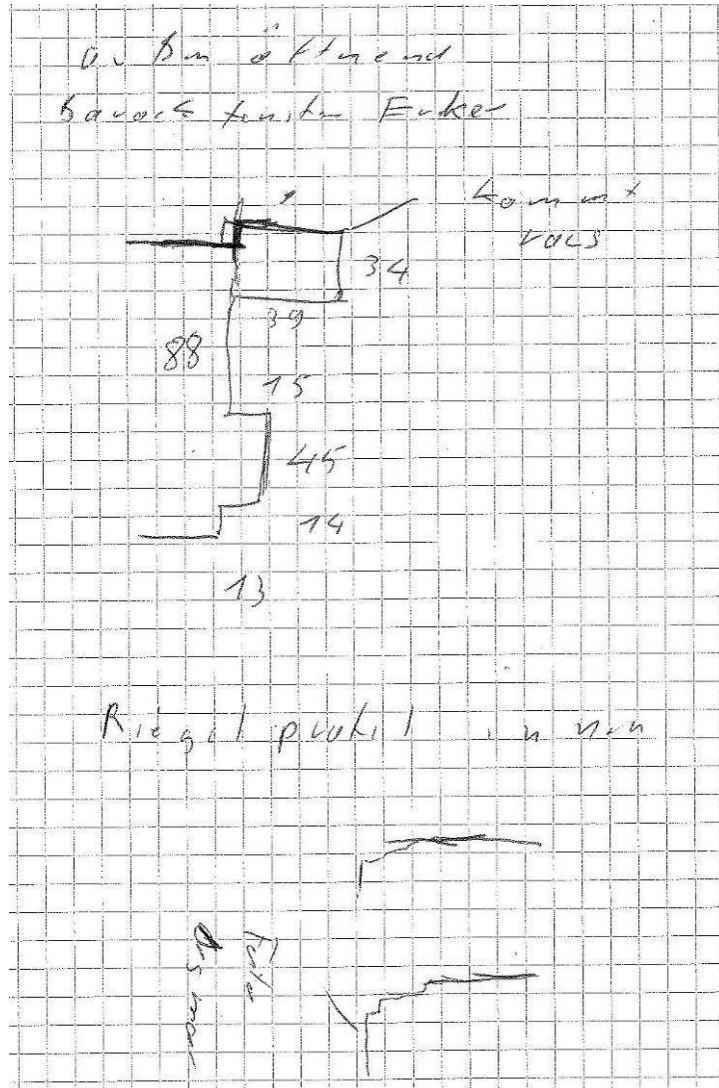 außen öffnend
barock fenster Erker
kommt
raus
34
39
88
15
45
14
13
Riegel profil innen